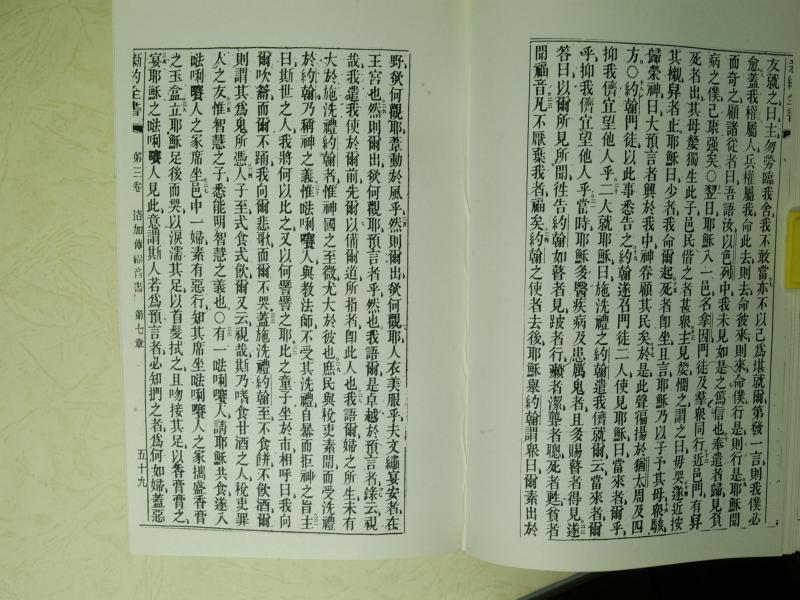 友就之曰主勿勞臨我舍我不敢當亦不以己爲堪就爾第發一言則我僕必
愈蓋我權屬人兵權屬我命此去則去命彼來則來命僕行是則行是耶穌聞
而奇之顧諸從者曰吾語汝以色列中我未見如是之篤信也奉遣者歸見負
病之僕已康強矣○翌日耶穌入一邑名拿因門徒及羣衆同行近邑門有昇
死者出其母嫠獨生此子邑民偕之者甚衆主見嫠憫之謂之曰毋哭遂近按
其櫬昇者止耶穌曰少者我命爾起死者卽坐且言耶穌乃以子予其母衆駭
歸榮神曰大預言者興於我中神眷顧其民矣於是此聲徧揚於猶太周及四
方○約翰門徒以此事悉告之約翰遂召門徒二人使見耶穌曰當來者爾乎
抑我儕宜望他人乎二人就耶穌曰施洗禮之約翰遣我儕就爾云當來者爾
乎抑我儕宜望他人乎當時耶穌多醫疾病及患厲鬼者且多賜瞽者得見遂
答曰以爾所見所聞徃告約翰如瞽者見跛者行癩者潔聾者聰死者甦貧者
聞福音凡不厭棄我者福矣約翰之使者去後耶穌舉約翰謂衆曰爾素出於
野欲何觀耶葦動於風乎然則爾出欲何觀耶人衣美服乎夫文繡宴安者在
王宮也然則爾出欲何觀耶預言者乎然也我語爾是卓越於預言者錄云視
哉我遣我使於爾前先爾以備爾道所指者卽此人也我語爾婦之所生未有
大於施洗禮約翰者惟神國之至微尤大於彼也庶民與稅吏素聞而受洗禮
於約翰乃稱神之義惟𠵽唎㘔人與教法師不受其洗禮自暴而拒神之旨主
曰斯世之人我將何以比之又以何譬譬之耶比之童子坐於市相呼曰我向
爾吹籥而爾不踊我向爾悲歌而爾不哭蓋施洗禮約翰至不食餅不飲酒爾
則謂其爲鬼所憑人子至式食式飲爾又云視哉斯乃嗜食甘酒之人稅吏罪
人之友惟智慧之子悉能明智慧之義也○有一𠵽唎㘔人請耶穌共食遂入
𠵽唎㘔人之家席坐邑中一婦素有惡行知其席坐𠵽唎㘔人之家攜盛香膏
之玉盒立耶穌足後而哭以淚濡其足以首髮拭之且吻接其足以香膏膏之
宴耶穌之𠵽唎㘔人見此意謂斯人若爲預言者必知捫之者爲何如婦蓋惡
新約全書 第三卷 路加傳福音書 第七章 五十九